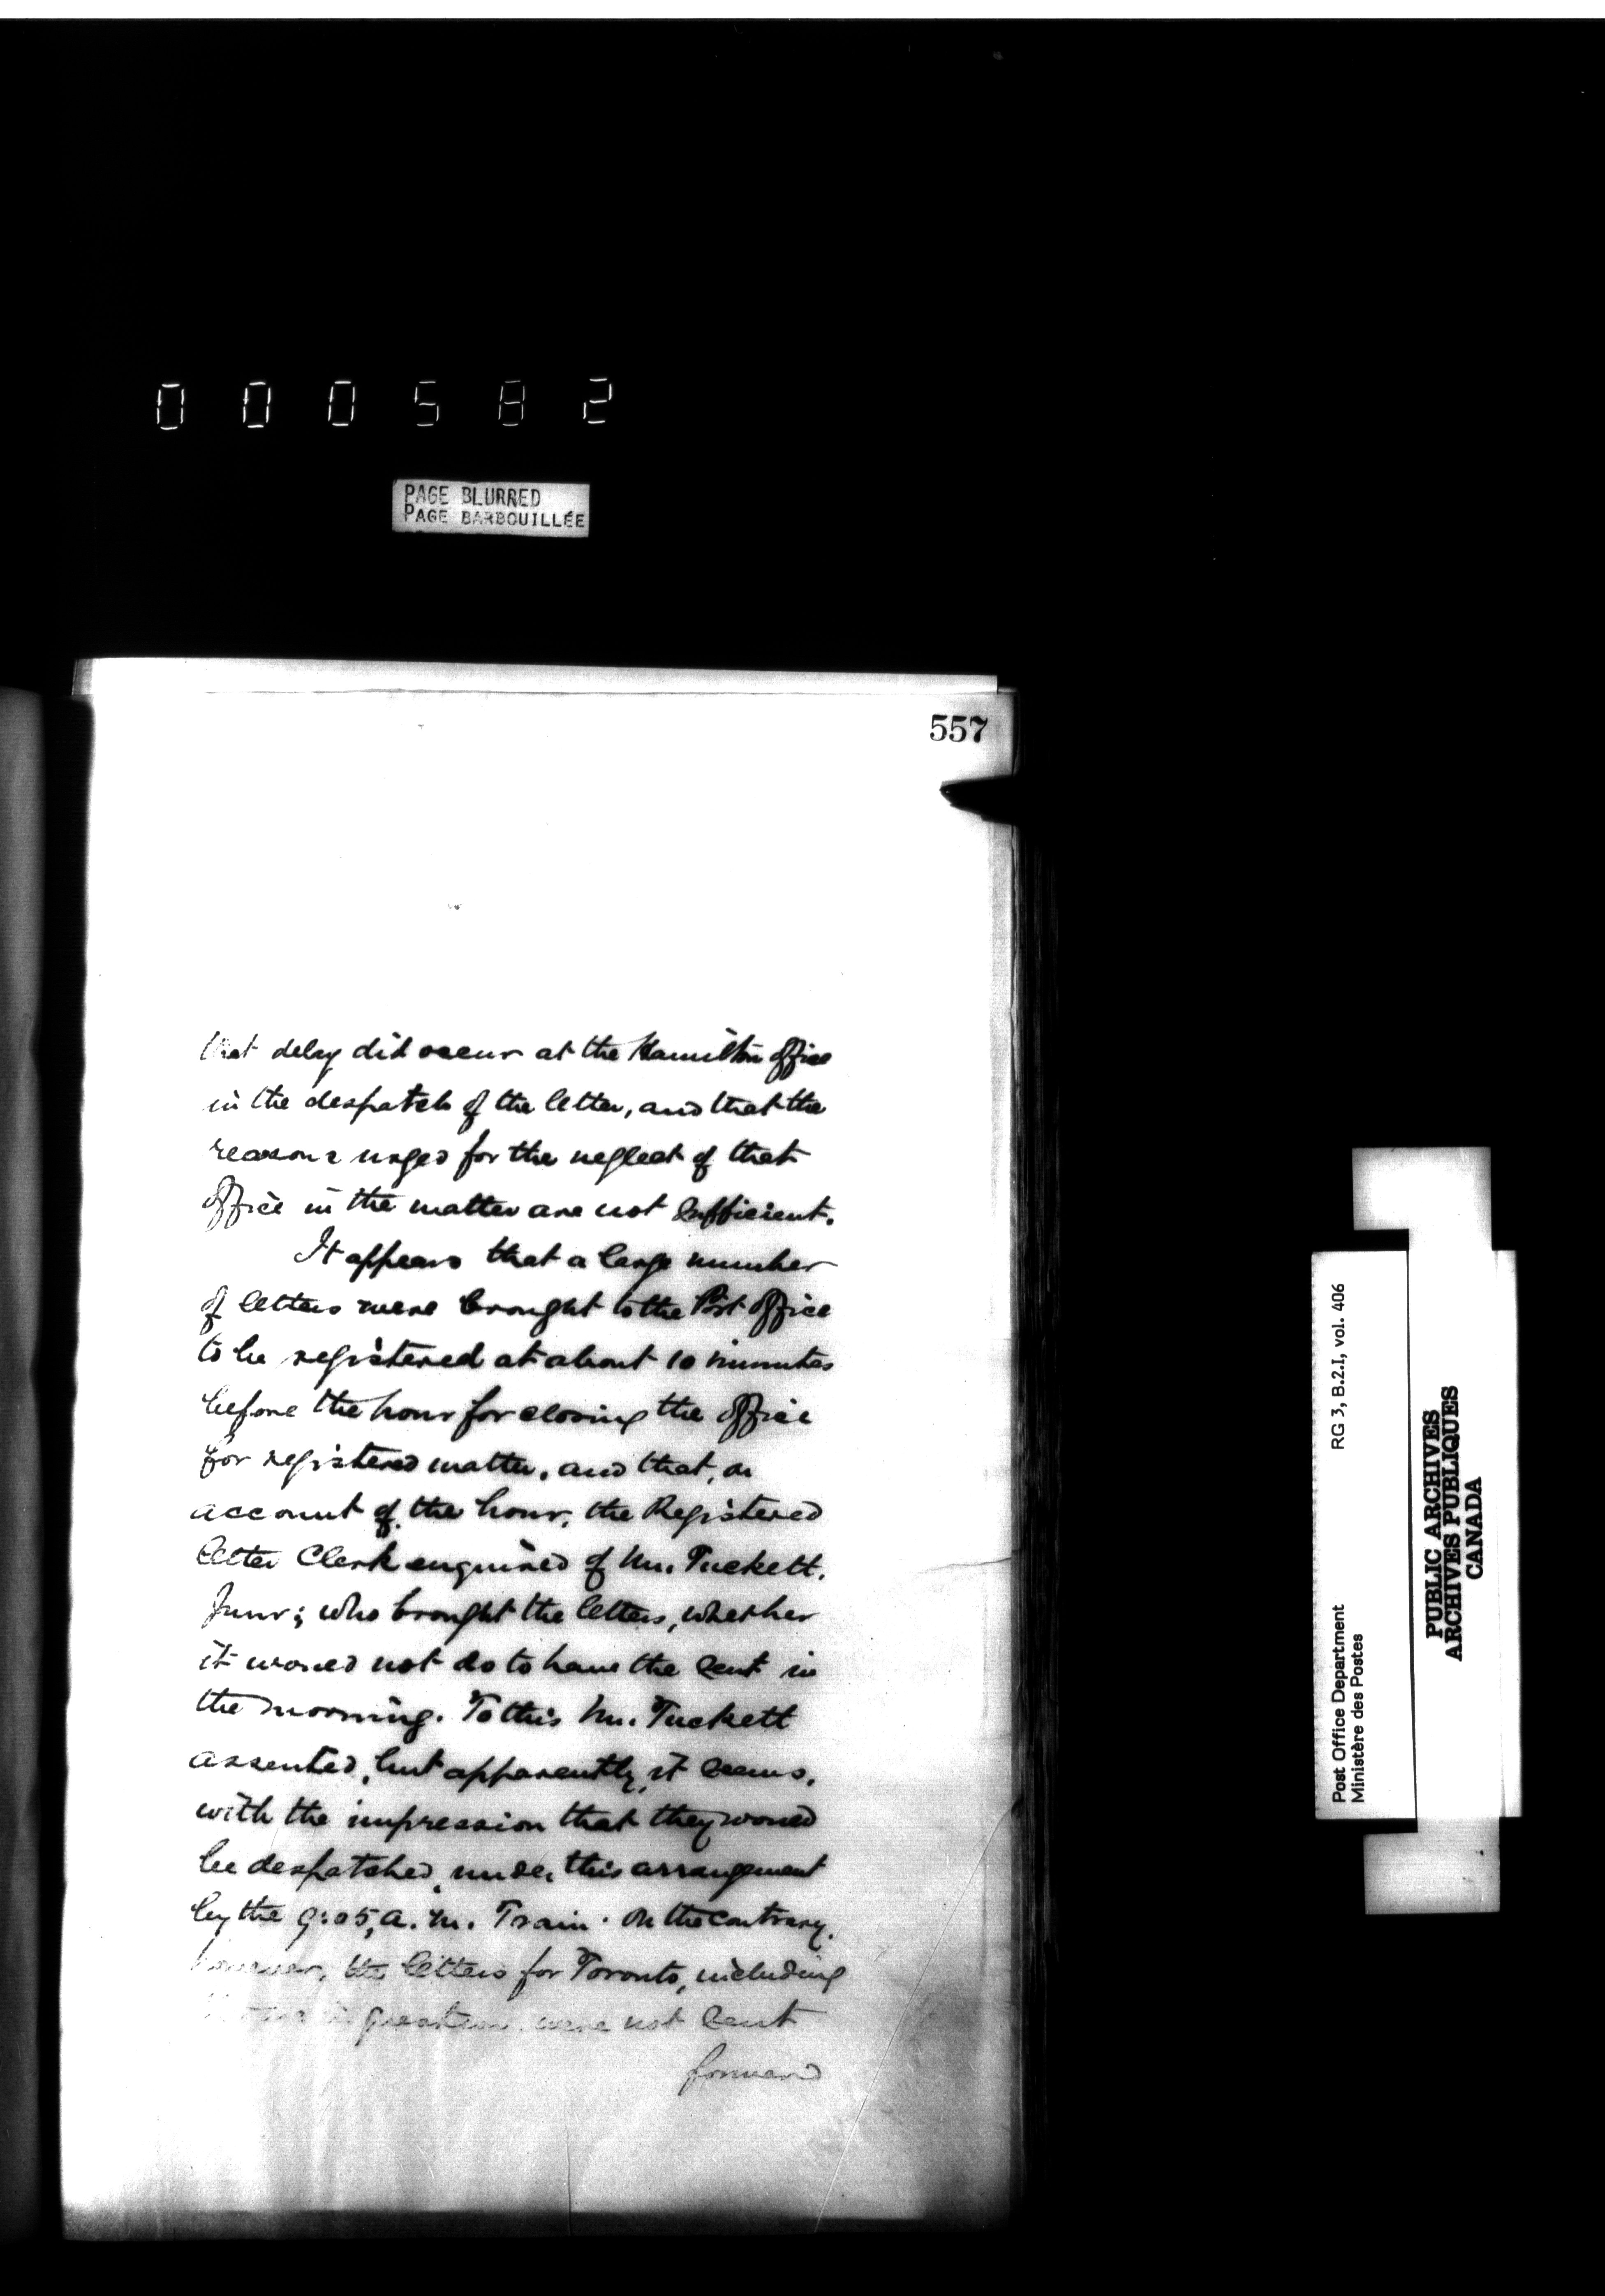 000582
PAGE BLURRED
PAGE BARBOUILLÉE
557
that delay did occur at the Hamilton office
in the despatch of the letter, and that the
reasons urged for the neglect of that
office in the matter are not sufficient.
It appears that a large number
of letters were brought to the Post Office
to be registered at about 10 minutes
before the hour for closing the office
for registered matter, and that, on
account of the hour, the Registered
letter Clerk enquired of Mr. Tuckett,
Junr; who brought the letters, whether
it would not do to have the sent in
the morning. To this Mr. Tuckett
assented, but apparently, it seems,
with the impression that they would
be despatched, under this arrangement
by the 9:05, A.M. Train. On the contrary,
however, the letters for Toronto, including
question were not sent
forward
Post Office Department
Ministère des Postes
RG 3, B.2.I, vol. 406
PUBLIC ARCHIVES
ARCHIVES PUBLIQUES
CANADA